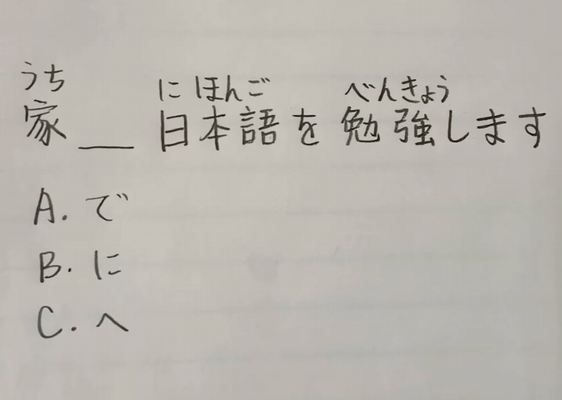 うち にほんご べんきょう
家__日本語を勉強します
A. で
B. に
C. へ